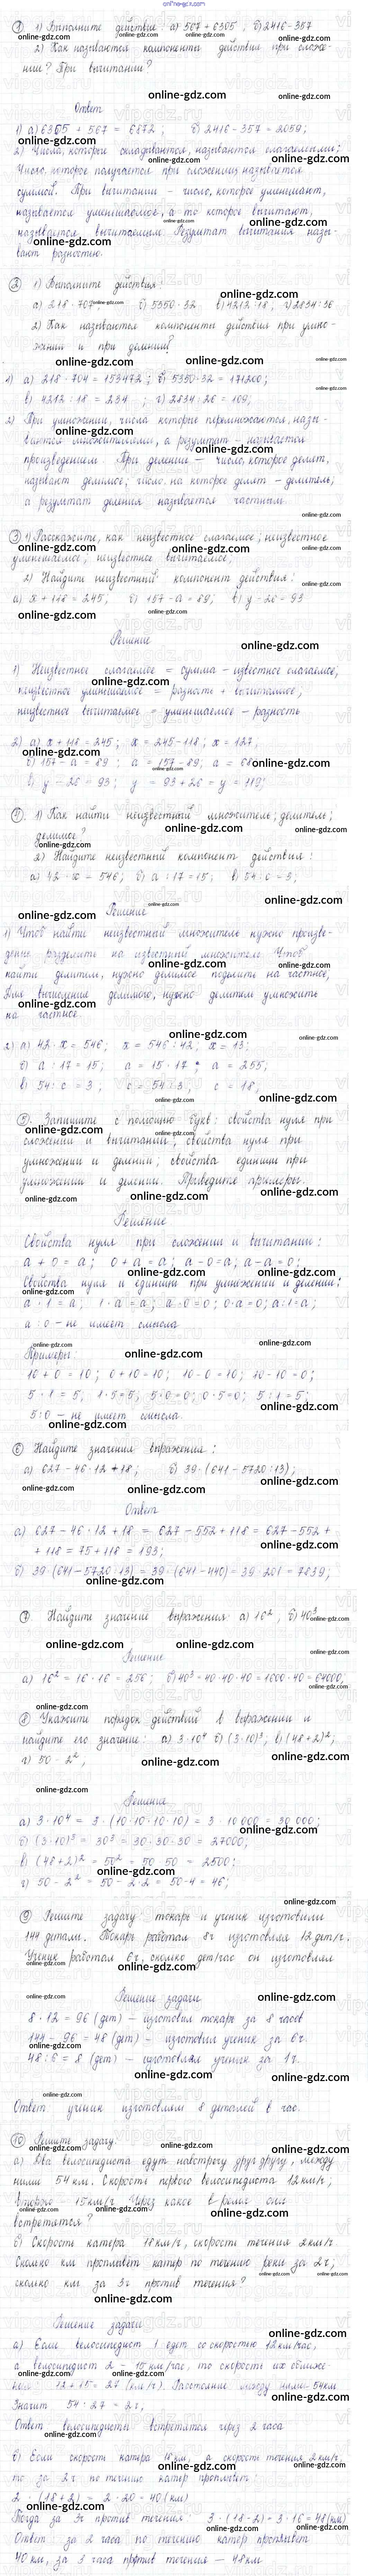 online-gdz.com
① 1) Выполните действие: а) 567 + 6305, б) 2416 - 357
2) Как называются компоненты действия при сложе-
нии? При вычитании?
Ответ
1) а) 6305 + 567 = 6872, б) 2416 - 357 = 2059;
2) Числа, которые складываются, называются слагаемыми;
Число, которое получается при сложении, называется
суммой. При вычитании - число, которое уменьшают,
называется уменьшаемое, а то которое вычитают,
называется вычитаемым. Результат вычитания назы-
вают разностью.
② 1) Выполните действия:
а) 218 · 704 б) 5350 · 32 в) 4212 : 18, г) 2834 : 26
2) Как называются компоненты действия при умно-
жении и при делении?
1) а) 218 · 704 = 153472; б) 5350 · 32 = 171200;
в) 4212 : 18 = 234; г) 2834 : 26 = 109;
2) При умножении, числа которые перемножаются, назы-
ваются множителями, а результат - называется
произведением. При делении - число, которое делят,
называют делимое; число, на которое делят - делитель,
а результат деления называется частным.
③ 1) Расскажите, как неизвестное слагаемое; неизвестное
уменьшаемое; неизвестное вычитаемое;
2) Найдите неизвестный компонент действия:
а) x + 118 = 245; б) 157 - а = 89; в) y - 26 = 93
Решение
1) Неизвестное слагаемое = сумма - известное слагаемое;
неизвестное уменьшаемое = разность + вычитаемое;
неизвестное вычитаемое = уменьшаемое - разность
2) а) x + 118 = 245; x = 245 - 118; x = 127;
б) 157 - а = 89; а = 157 - 89; а = 68
в) y - 26 = 93; y = 93 + 26 = y = 119;
④. 1) Как найти неизвестный множитель; делитель;
делимое?
2) Найдите неизвестный компонент действия:
а) 42 · x = 546; б) а : 17 = 15; в) 54 : с = 3;
Решение
1) Чтоб найти неизвестный множитель нужно произве-
дение разделить на известный множитель. Чтоб
найти делитель, нужно делимое поделить на частное,
Для вычисления делимого, нужно делитель умножить
на частное.
2) а) 42 · x = 546; x = 546 : 42; x = 13;
б) а : 17 = 15; а = 15 · 17; а = 255;
в) 54 : с = 3; с = 54 : 3; с = 18;
⑤. Запишите с помощью букв: свойства нуля при
сложении и вычитании; свойства нуля при
умножении и делении; свойства единицы при
умножении и делении. Приведите примеры.
Решение
Свойства нуля при сложении и вычитании:
а + 0 = а; 0 + а = а; а - 0 = а; а - а = 0;
Свойства нуля и единицы при умножении и делении:
а · 1 = а; 1 · а = а; а · 0 = 0; 0 · а = 0; а : 1 = а;
а : 0 - не имеет смысла
Примеры:
10 + 0 = 10; 0 + 10 = 10; 10 - 0 = 10; 10 - 10 = 0;
5 · 1 = 5; 1 · 5 = 5; 5 · 0 = 0; 0 · 5 = 0; 5 : 1 = 5;
5 : 0 - не имеет смысла.
⑥ Найдите значения выражения:
а) 627 - 46 · 12 + 118; б) 39 · (641 - 5720 : 13);
Ответ
а) 627 - 46 · 12 + 18 = 627 - 552 + 118 = 627 - 552 +
+ 118 = 75 + 118 = 193;
б) 39 · (641 - 5720 : 13) = 39 · (641 - 440) = 39 · 201 = 7839;
⑦ Найдите значение выражения а) 16², б) 40³
Решение
а) 16² = 16 · 16 = 256; б) 40³ = 40 · 40 · 40 = 1600 · 40 = 64000;
⑧ Укажите порядок действий в выражении и
найдите его значение: а) 3 · 10⁴ б) (3 · 10)³; в) (48 + 2)²;
г) 50 - 2²;
Решение
а) 3 · 10⁴ = 3 · (10 · 10 · 10 · 10) = 3 · 10 000 = 30 000;
б) (3 · 10)³ = 30³ = 30 · 30 · 30 = 27000;
в) (48 + 2)² = 50² = 50 · 50 = 2500;
г) 50 - 2² = 50 - 2 · 2 = 50 - 4 = 46;
⑨ Решите задачу: токарь и ученик изготовили
144 детали. Токарь работал 8ч изготовляя 12 дет/ч.
Ученик работал 6ч, сколько дет/час он изготовлял
Решение задачи
8 · 12 = 96 (дет) - изготовил токарь за 8 часов
144 - 96 = 48 (дет) - изготовил ученик за 6ч
48 : 6 = 8 (дет) - изготовлял ученик за 1ч.
Ответ ученик изготовлял 8 деталей в час.
⑩ Решите задачу:
а) Два велосипедиста едут навстречу друг другу, между
ними 54 км. Скорость первого велосипедиста 12 км/ч,
второго 15 км/ч. Через какое время они
встретятся?
б) Скорость катера 18 км/ч, скорость течения 2 км/ч.
Сколько км проплывет катер по течению реки за 2ч,
сколько км за 3ч против течения?
Решение задачи
а) Если велосипедист 1 едет со скоростью 12 км/час,
а велосипедист 2 - 15 км/час, то скорость их сближе-
ния 12 + 15 = 27 (км/ч). Расстояние между ними 54 км
Значит 54 : 27 = 2ч,
Ответ велосипедисты встретятся через 2 часа
б) Если скорость катера 18 км, а скорость течения 2 км/ч,
то за 2ч по течению катер проплывет:
2 · (18 + 2) = 2 · 20 = 40 (км)
Тогда за 3ч против течения: 3 · (18 - 2) = 3 · 16 = 48 (км)
Ответ за 2 часа по течению катер проплывет
40 км, за 3 часа против течения - 48 км